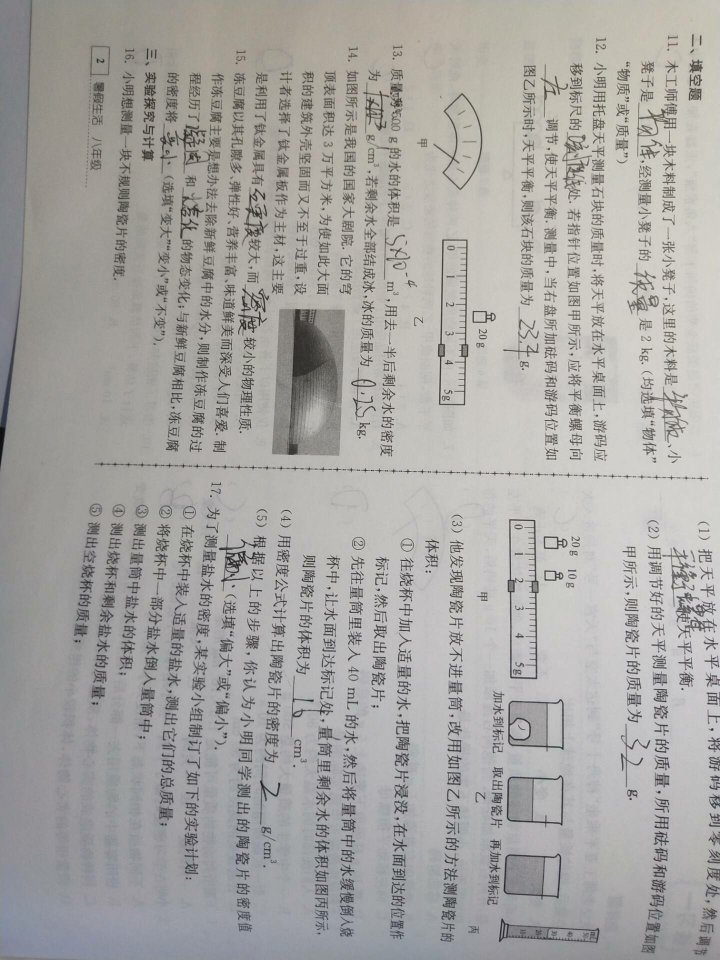 二、填空题
11. 木工师傅用一块木料制成了一张小凳子,这里的木料是 物质、小
凳子是 物体,经测量小凳子的 质量 是 2 kg.(均选填“物体”
“物质”或“质量”)
12. 小明用托盘天平测量石块的质量时,将天平放在水平桌面上,游码应
移到标尺的 处,若指针位置如图甲所示,应将平衡螺母向
左 调节,使天平平衡.测量中,当右盘所加砝码和游码位置如
图乙所示时,天平平衡,则该石块的质量为 23.4 g.
20 g
0 1 2 3 4 5g
甲
乙
13. 质量为 500 g 的水的体积是 5×10⁻⁴ m³,用去一半后剩余水的密度
为 g/cm³,若剩余水全部结成冰,冰的质量为 0.25 kg.
14. 如图所示是我国的国家大剧院.它的穹
顶表面积达 3 万平方米,为使如此大面
积的建筑外壳坚固而又不至于过重,设
计者选择了钛金属板作为主材,这主要
是利用了钛金属具有 硬度 较大,而 密度 较小的物理性质.
15. 冻豆腐以其孔隙多、弹性好、营养丰富、味道鲜美而深受人们喜爱.制
作冻豆腐主要是想办法去除新鲜豆腐中的水分,则制作冻豆腐的过
程经历了 凝固 和 熔化 的物态变化;与新鲜豆腐相比,冻豆腐
的密度将 变小 (选填“变大”“变小”或“不变”).
三、实验探究与计算
16. 小明想测量一块不规则陶瓷片的密度.
2 暑假生活 八年级
(1) 把天平放在水平桌面上,将游码移到零刻度处,然后调节
平衡螺母 使天平平衡.
(2) 用调节好的天平测量陶瓷片的质量,所用砝码和游码位置如图
甲所示,则陶瓷片的质量为 32 g.
20 g 10 g
0 1 2 3 4 5g
加水到标记 取出陶瓷片 再加水到标记
甲 乙 丙
(3) 他发现陶瓷片放不进量筒,改用如图乙所示的方法测陶瓷片的
体积:
① 往烧杯中加入适量的水,把陶瓷片浸没,在水面到达的位置作
标记,然后取出陶瓷片;
② 先往量筒里装入 40 mL 的水,然后将量筒中的水缓慢倒入烧
杯中,让水面到达标记处,量筒里剩余水的体积如图丙所示,
则陶瓷片的体积为 16 cm³.
(4) 用密度公式计算出陶瓷片的密度为 2 g/cm³.
(5) 根据以上的步骤,你认为小明同学测出的陶瓷片的密度值
偏小 (选填“偏大”或“偏小”).
17. 为了测量盐水的密度,某实验小组制订了如下的实验计划:
① 在烧杯中装入适量的盐水,测出它们的总质量;
② 将烧杯中一部分盐水倒入量筒中;
③ 测出量筒中盐水的体积;
④ 测出烧杯和剩余盐水的质量;
⑤ 测出空烧杯的质量;